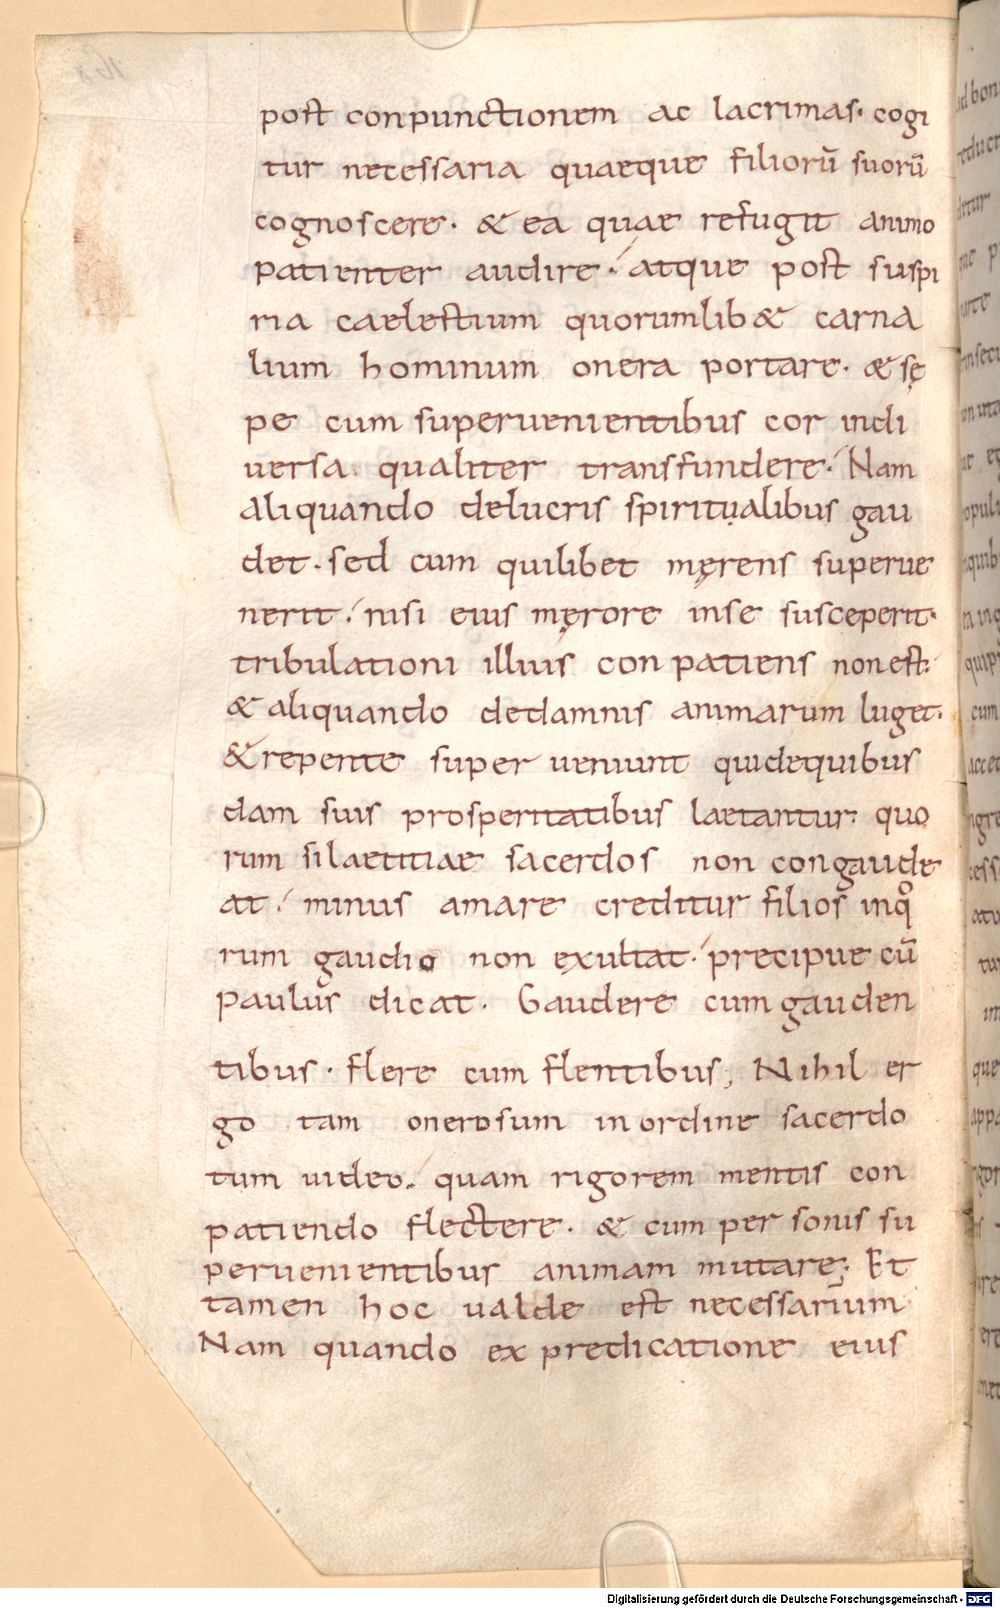 post conpunctionem ac lacrimas· cogi
tur necessaria quaeque filiorū suorū
cognoscere· & ea quae refugit animo
patienter audire· atque post suspi
ria caelestium quorumlib& carna
lium hominum onera portare· & sę
pe cum superuenientibus cor indi
uersa qualiter transfundere· Nam
aliquando delucris spiritualibus gau
det· sed cum quilibet męrens superue
nerit· nisi eius męrore inse susceperit·
tribulationi illius conpatiens non est·
& aliquando dedamnis animarum luget·
& repente super ueniunt quidequibus
dam suis prosperitatibus laetantur· quo
rum si laetitiae sacerdos non congaude
at· minus amare creditur filios inqͦ
rum gaudio non exultat· precipue cū
paulus dicat· Gaudere cum gauden
tibus· flere cum flentibus; Nihil er
go tam onerosum in ordine sacerdo
tum uideo· quam rigorem mentis con
patiendo flectere· & cum personis su
peruenientibus animam mutare· Et
tamen hoc ualde est necessarium
Nam quando ex predicatione eius
Digitalisierung gefördert durch die Deutsche Forschungsgemeinschaft - DFG